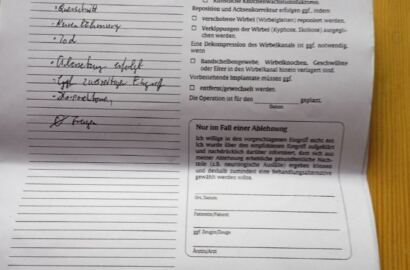 • Querschnitt
• Nervenlähmung
• Tod
• erfolgt
• ggf. zweizeitiger Eingriff
Fragen
Reposition und Achsenkorrektur erfolgen ggf., indem
□ verschobene Wirbel (Wirbelgleiten) reponiert werden.
□ Verkippungen der Wirbel (Kyphose, Skoliose) ausgegli-
chen werden.
Eine Dekompression des Wirbelkanals ist ggf. notwendig,
wenn
□ Bandscheibengewebe, Wirbelknochen, Geschwülste
oder Eiter in den Wirbelkanal hinein verlagert sind.
Vorbestehende Implantate müssen ggf.
□ entfernt/gewechselt werden.
Die Operation ist für den geplant.
Datum
Nur im Fall einer Ablehnung
Ich willige in den vorgeschlagenen Eingriff nicht ein.
Ich wurde über den empfohlenen Eingriff aufgeklärt
und nachdrücklich darüber informiert, dass sich aus
meiner Ablehnung erhebliche gesundheitliche Nach-
teile (z.B. neurologische Ausfälle) ergeben können
und deshalb zumindest eine Behandlungsalternative
gewählt werden sollte.
Ort, Datum
Patientin/Patient
ggf. Zeugin/Zeuge
Ärztin/Arzt